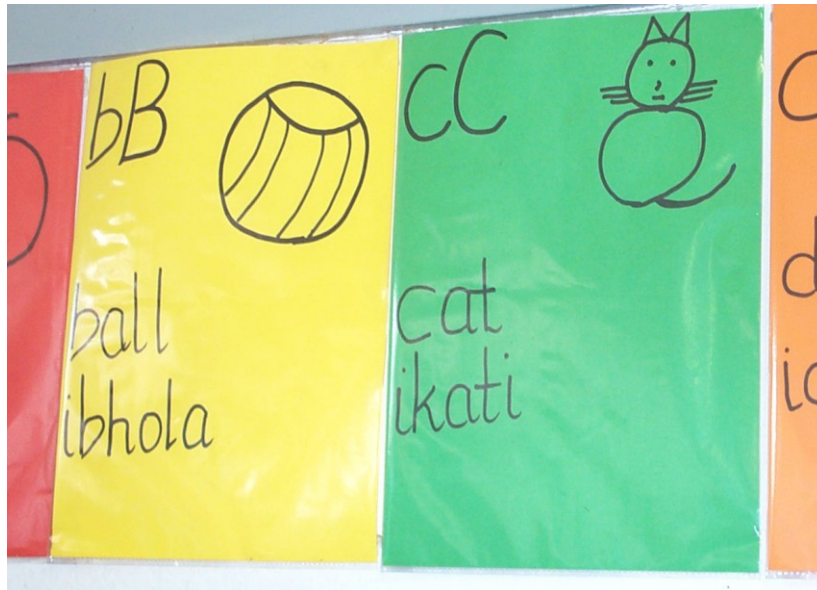 bB
ball
ibhola
cC
cat
ikati